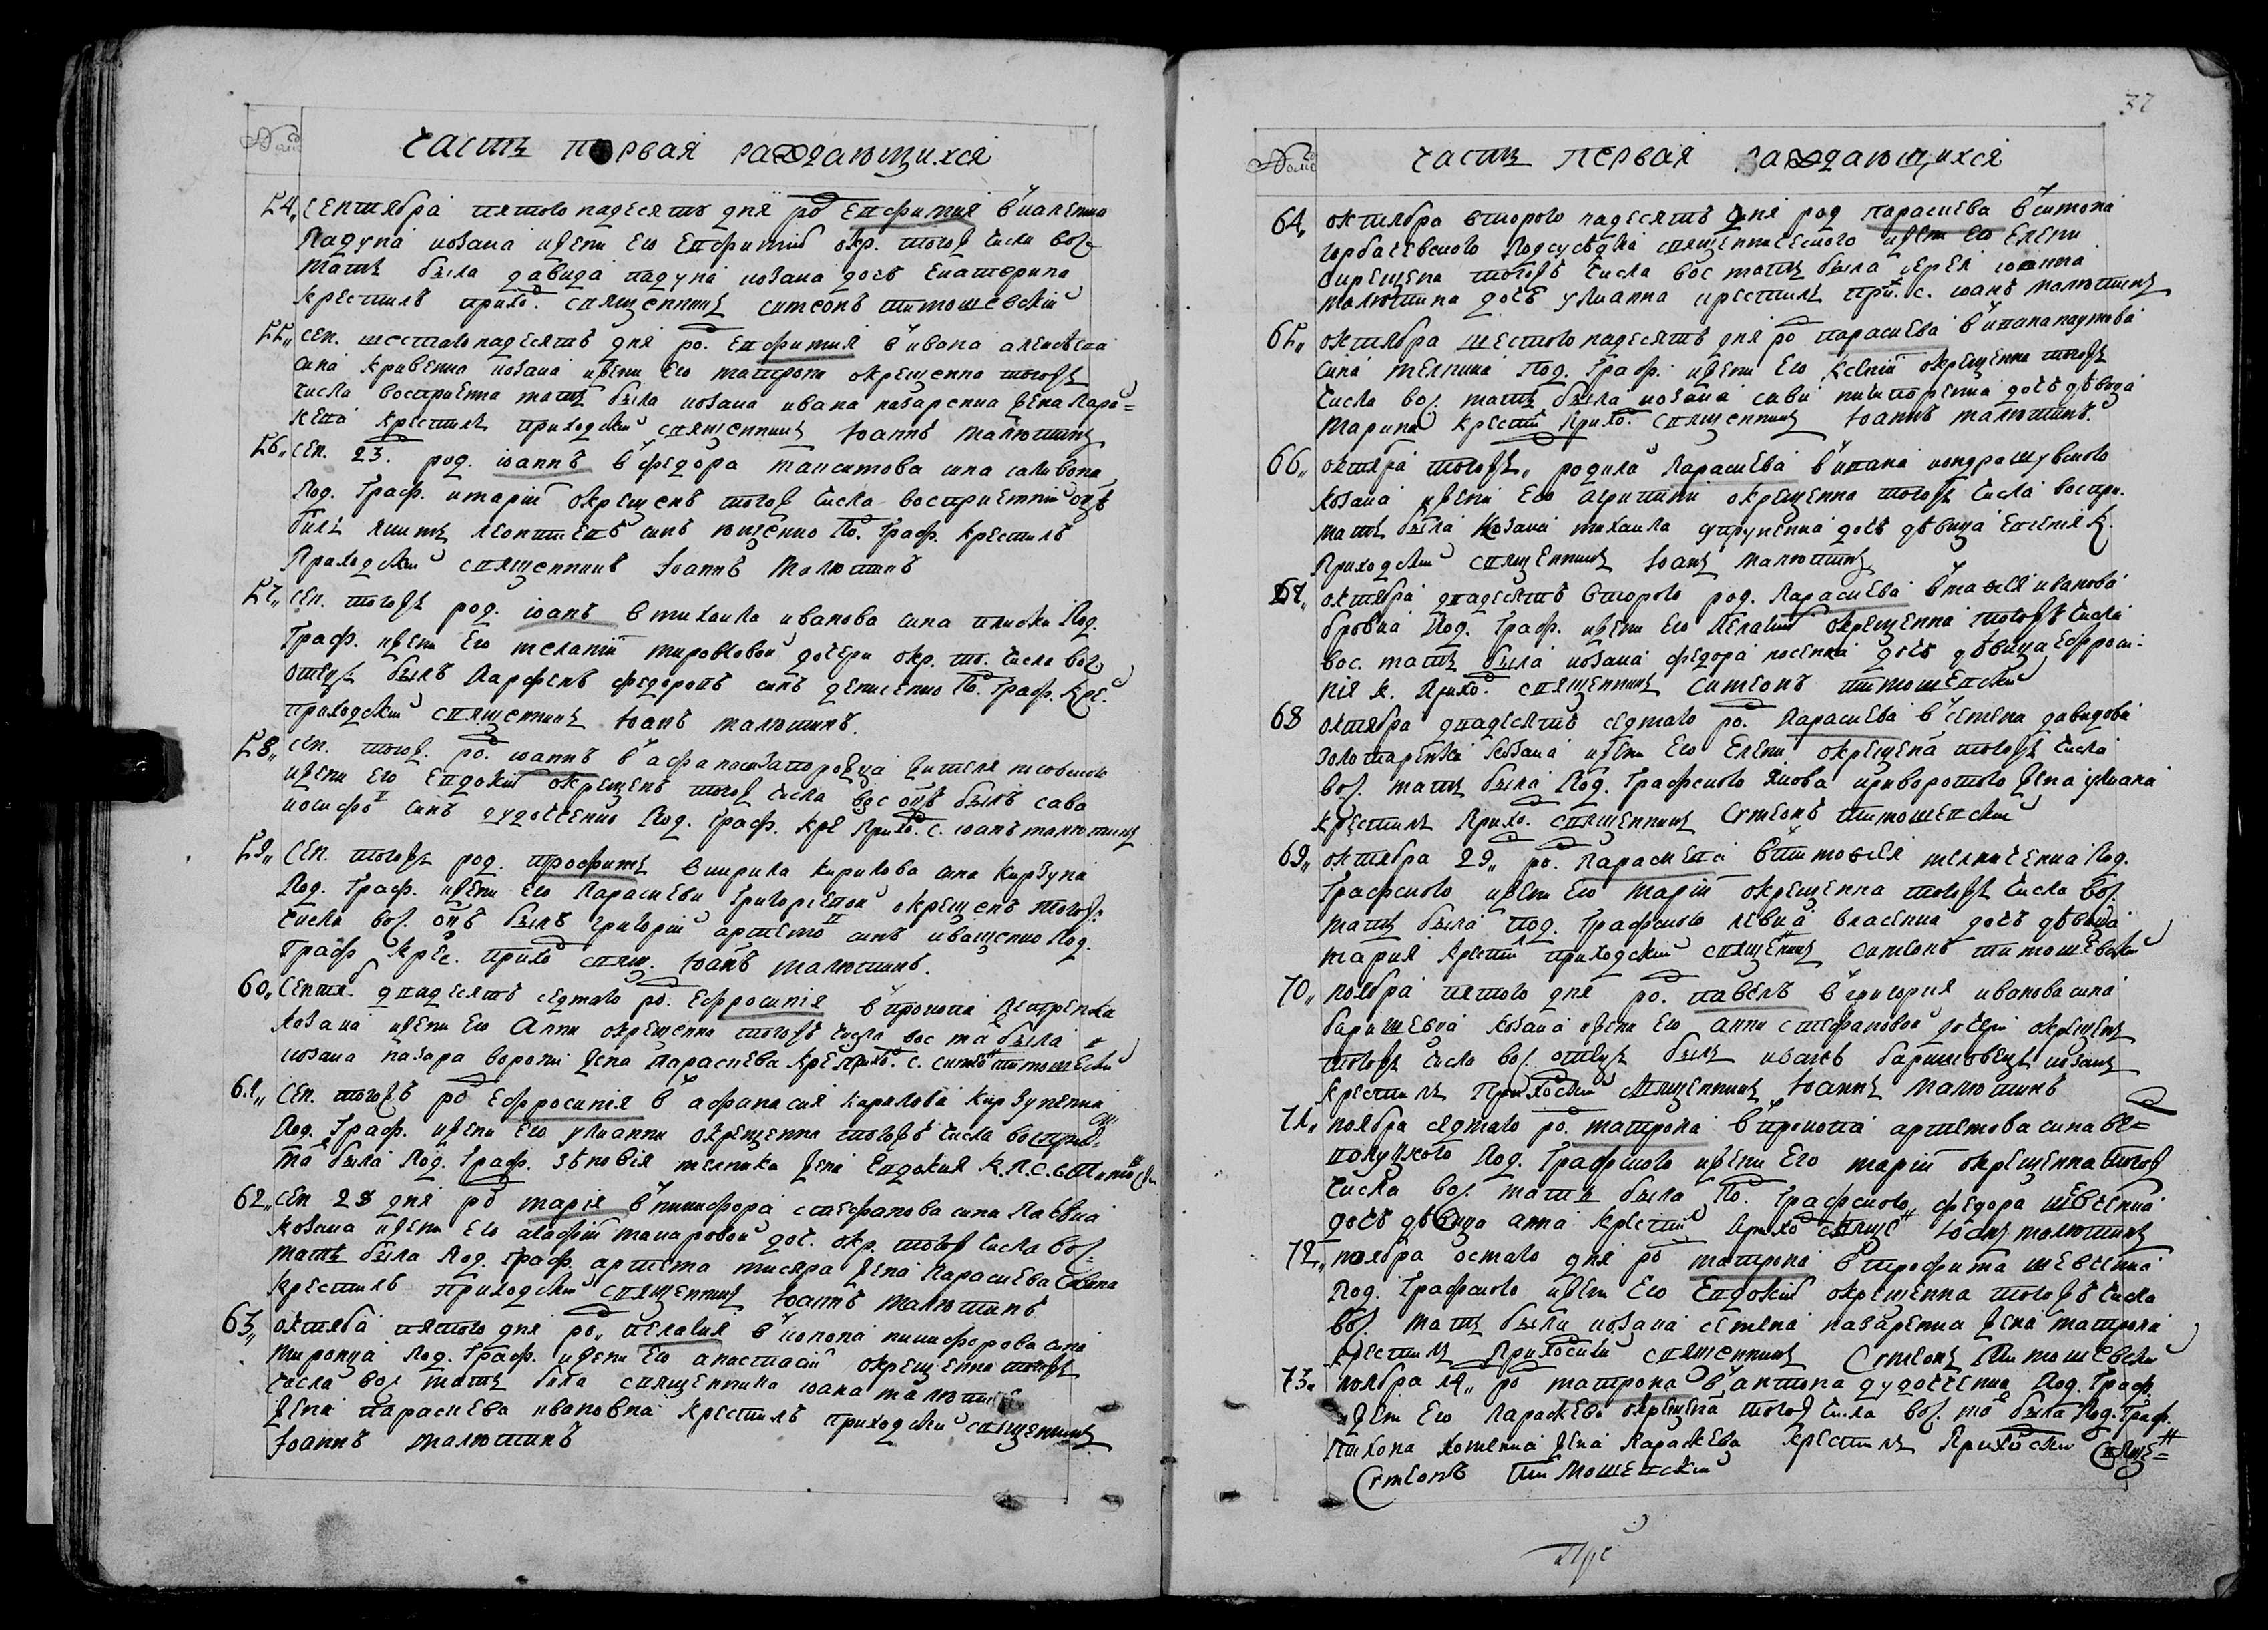 часть первая раждающихся
54, сентября пятогонадесять дня ро Епфимия в
козака и жени его Епфимии окр. тогож числа вос.
мать была давида козака дочь Екатерина
крестилъ прихо. священникъ симеонъ тимошевский
55, сен. шестагонадесять дня ро. Епфимия в ивана алексеева
сина кривенка козака и жени его матрони окрещенна тогожъ
числа восприемна мать была козака ивана назаренка жена пара=
кепа крестилъ приходский священникъ Iоаннъ малютинъ
56, сен. 23. род. иоаннъ в федора максимова сина
Под. Граф. и марии окрещенъ тогож числа восприемний оцъ
билъ леонтиевъ синъ ющенко По. Граф. крестилъ
Приходский священникъ Iоаннъ малютинъ
57, сен. тогожъ род. иоанъ в михаила иванова сина Под.
Граф. и жени его мелании дочери окр. то. числа вос.
отецъ былъ Парфенъ федоровъ синъ денисенко По. Граф. Кре.
приходский священникъ Iоанъ малютинъ.
58, сен. тогож. ро. иоаннъ в жителя
и жени его Епдокии окрещенъ тогож числа вос оцъ былъ сава
иосифов синъ дудоченко Под. Граф. кре Прихо. с. иоанъ малютинъ
59, Сен. тогожъ род. трофимъ в кирила кирилова сина Кирзуна
Под. Граф. и жени его Параскеви Григориевой окрещенъ тогож:
числа вос. оцъ былъ григорий артемов синъ иващенко Под.
Граф Крес. прихо свящ. Iоанъ малютинъ.
60, Сентя. двадесять седмаго ро. Ефросиния в прокопа петренка
козака и жени его Анни окрещенна тогожъ числа вос ма была
козака назара ворони жена Параскева кре Прихо. с. симео тимошевский
61, Сен. тогожъ ро Ефросиния в афанасия кирилова Кирзуненка
Под. Граф. и жени его улианни окрещенна тогожъ числа воспри
ма была Под. Граф. зѣновия мелника жена Епдокия К. П. С.
62, Сен 28 дня ро мария в никифора стефанова сина
козака и жени его агафии макаровой доч. окр. тогож числа вос.
мать была Под. Граф. артема жена Параскева
крестилъ приходский священникъ Iоаннъ малютинъ
63, октяба пятого дня ро. пелагия в конона никифорова сина
миронца Под. Граф. и жени его анастасии окрещенна тогожъ
числа вос мать била священника иоана малютина
жена параскева ивановна крестилъ приходский священникъ
Iоаннъ малютинъ
37
часть первая раждающихся
64, октября второгонадесять дня род параскева в симона
горбачевского Подсусѣдка священнического и жени его Елени
окрещена тогожъ числа вос мать была иерея иоанна
малютина дочъ улианна крестилъ при. с. иоанъ малютинъ
65, октября шестогонадесять дня ро параскева в ивана наумова
сина Под. Граф. и жени его Ксении окрещенна тогожъ
числа вос. мать была козака сави никифоренка дочъ дѣвица
марина Крестил Прихо. священникъ Iоаннъ малютинъ.
66, октября тогожъ, родила Параскева в ивана кондрашувского
козака и жени его агрипини окрещенна тогожъ числа воспри.
мать была козака михаила дочъ дѣвица Епгения К.
Приходский священникъ Iоанъ малютинъ
67, октября двадесять второго род. Параскева в иванова
бровка Под. Граф. и жени его Пелагии окрещенна тогожъ числа
вос. мать была козака федора косенка дочъ дѣвица Ефроси-
ния к. Прихо. священникъ симеонъ тимошевский
68 октября двадесять седмаго ро. Параскева в семена давидова
золотаренка козака и жени его Елени окрещена тогожъ числа
вос. мать была Под. Графского Якова криворотого жена улиана
крестилъ Прихо. священникъ Симеонъ тимошевский
69, октября 29, ро. Параскева в тимофея мелниченка Под.
Графского и жени его марии окрещенна тогожъ числа вос.
мать была под. Графского левка власенка дочъ дѣвица
мария Крестил приходский священникъ симеонъ тимошевский
70, ноября пятого дня ро. павелъ в григория иванова сина
баришевца козака и жени его анни стефановой дочери окрещенъ
тогожъ числа вос. отецъ былъ баришовецъ козакъ
крестилъ Приходский священникъ Iоаннъ малютинъ
71, ноября седмаго ро. матрона в прокопа артемова сина ве=
Под. Графского и жени его марии окрещенна тогож
числа вос. мать была По. Графского федора шевченка
дочъ дѣвица анна крестил Прихо свяще Iоанъ малютинъ
72, ноября осмаго дня ро матрона в трофима шевченка
Под. Графского и жени его Епдокии окрещенна тогожъ числа
вос. мать была козака семена назаренка жена матрона
крестилъ Приходский священникъ Симеонъ Тимошевский
73, ноября 14, ро матрона в антона дудоченка Под. Граф.
и жени его Параскеви окрещена тогож числа вос. ма была Под. Граф.
тихона хоменка жена Параскева крестилъ Приходский Свяще=
Симеонъ Тимошевский